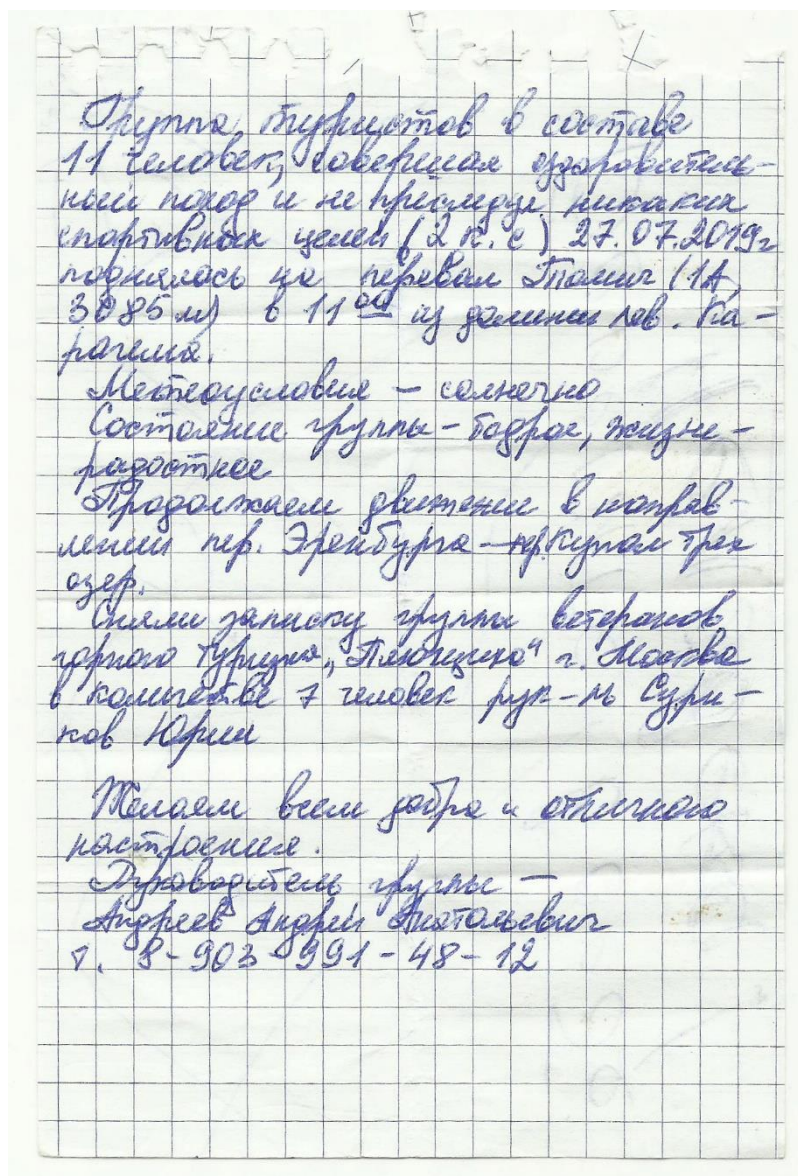 Группа туристов в составе
11 человек, совершая оздоровитель-
ный поход и не преследуя никаких
спортивных целей (2 к. с) 27.07.2019г
поднялось на перевал Томич (1А,
3085 м) в 11 00 из долины лев. Ка-
рагема.
Метеоусловия - солнечно
Состояние группы - бодрое, жизне-
радостное
Продолжаем движение в направ-
лении пер. Эренбурга - пер. Купол Трех
озер.
Сняли записку группы ветеранов
горного туризма „Плющиха" г. Москва
в количестве 7 человек рук-ль Сури-
ков Юрий
Желаем всем добра и отличного
настроения.
Руководитель группы -
Андреев Андрей Анатольевич
т. 8-903-991-48-12